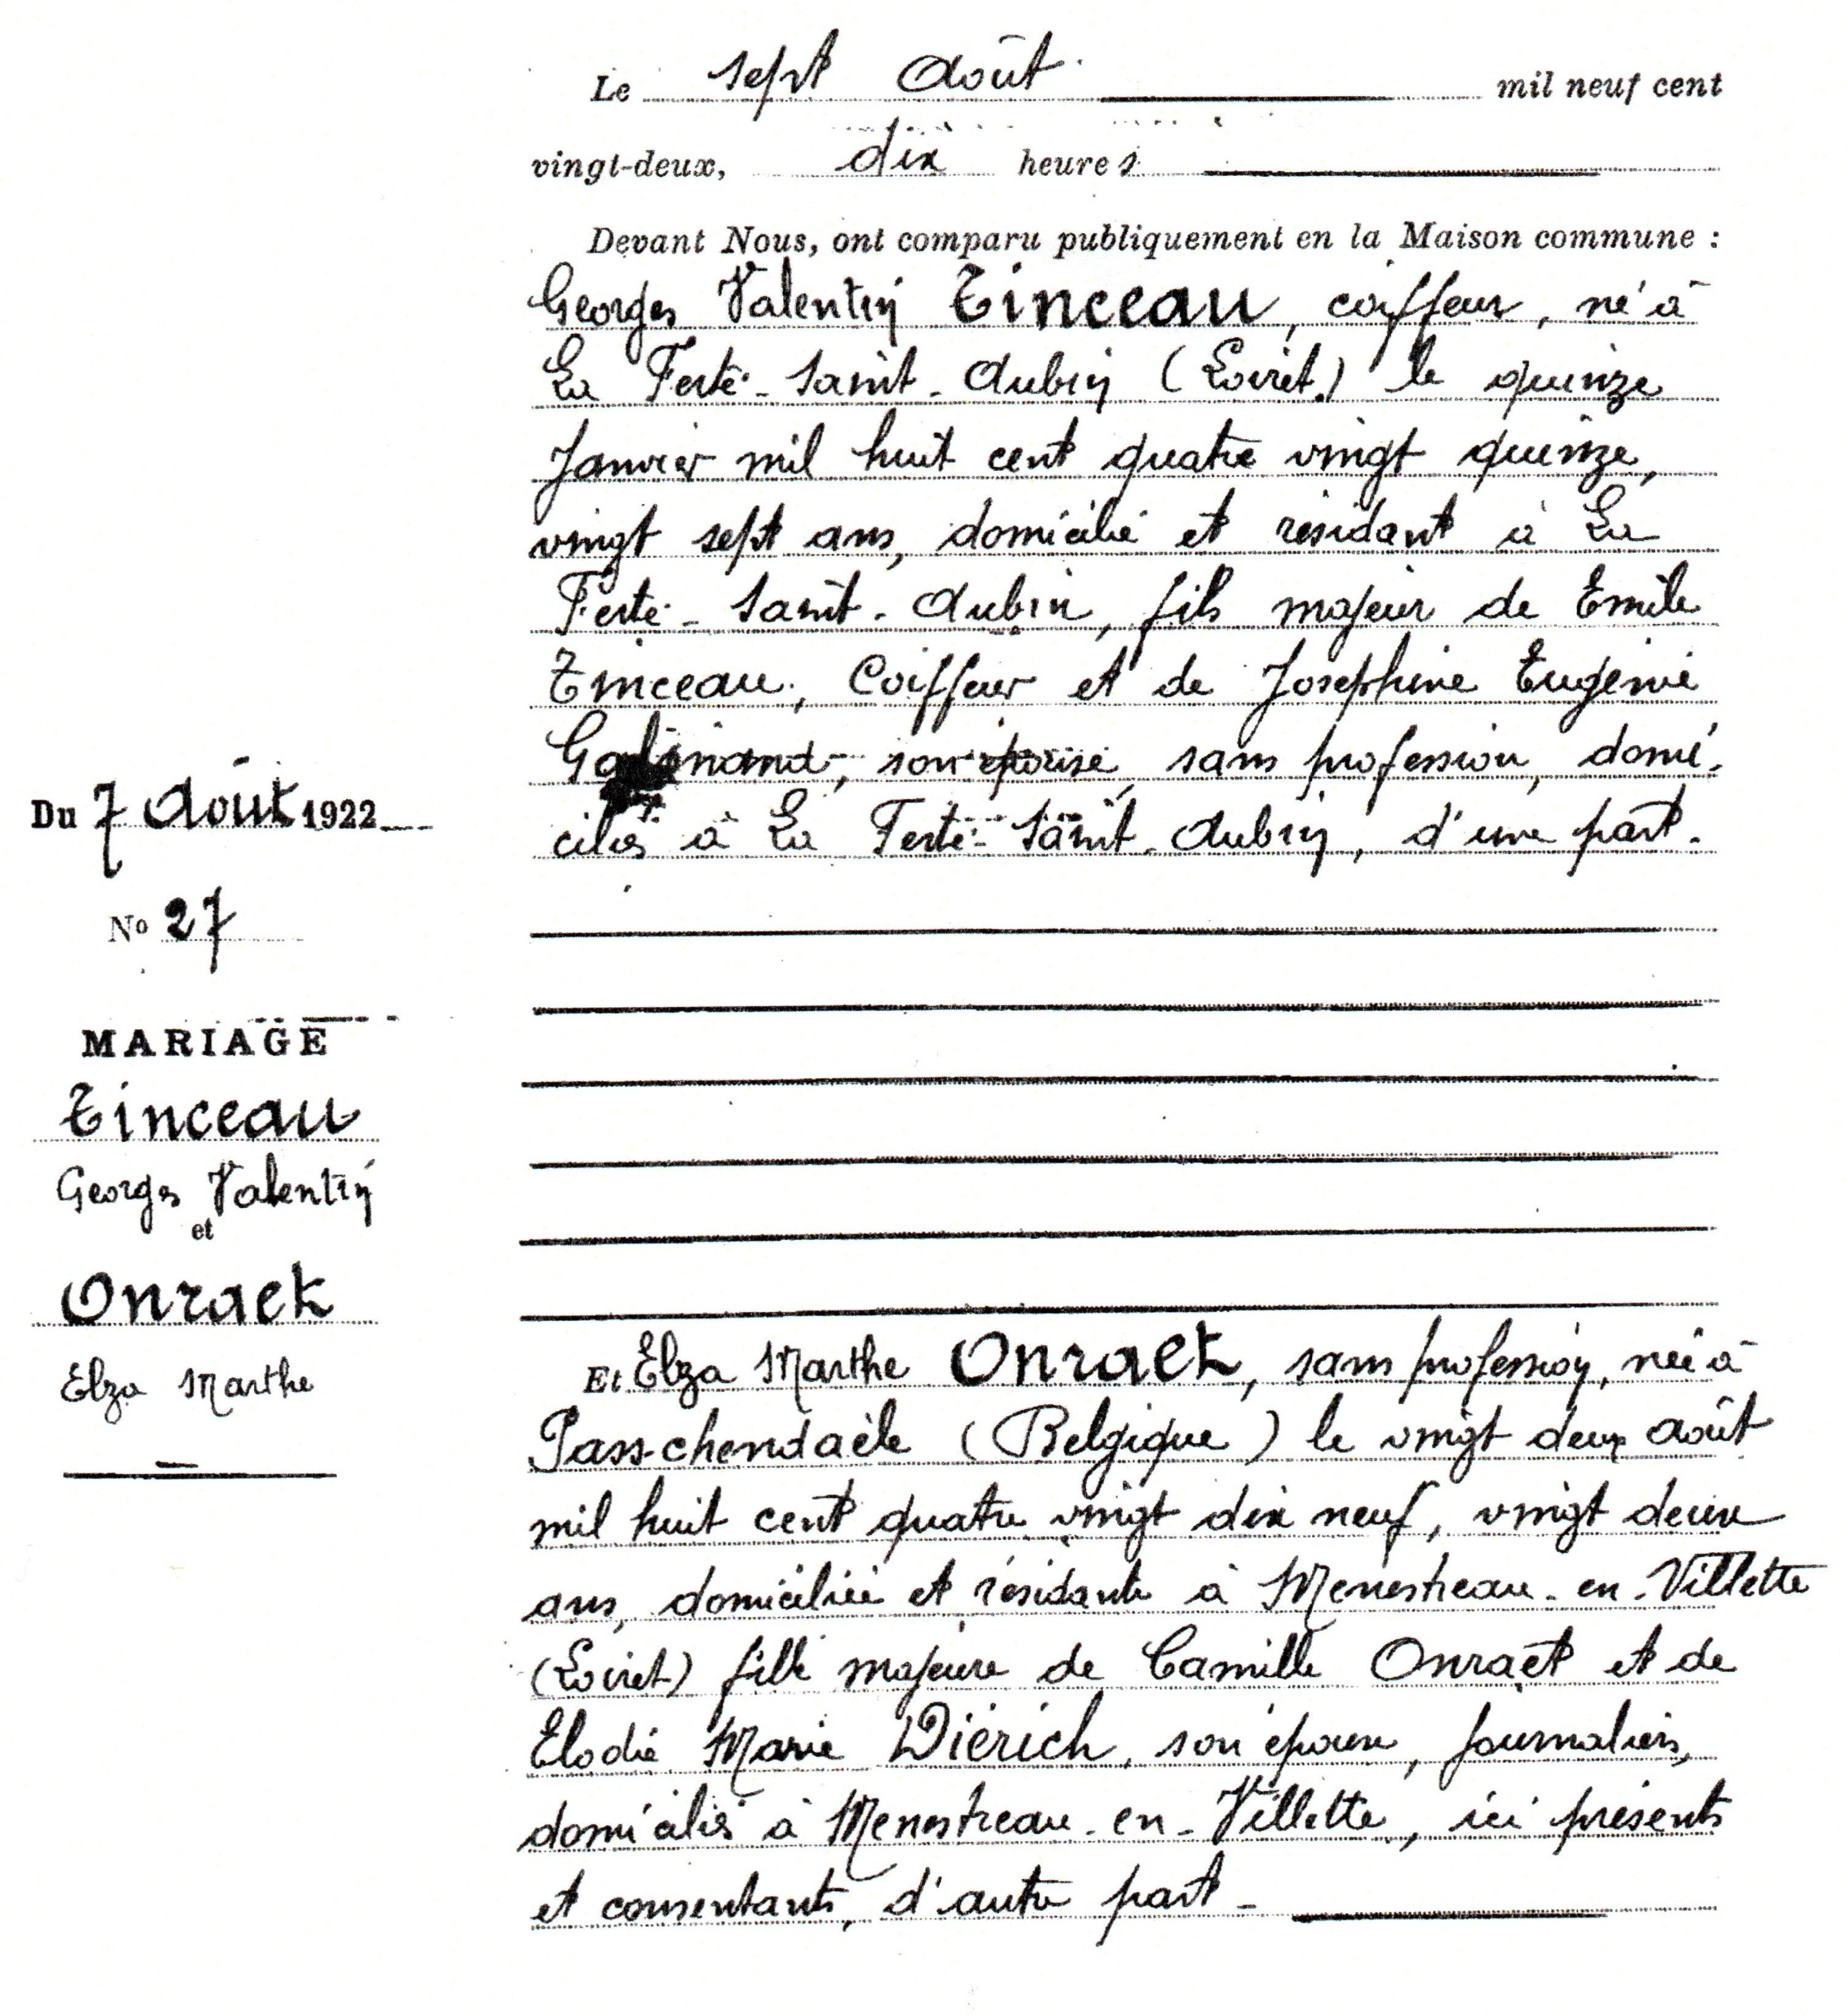 Le sept Août mil neuf cent
vingt-deux, dix heures
Devant Nous, ont comparu publiquement en la Maison commune :
Georges Valentin Tinceau, coiffeur, né à
La Ferté-Saint-Aubin (Loiret) le quinze
Janvier mil huit cent quatre vingt quinze,
vingt sept ans, domicilié et résidant à La
Ferté-Saint-Aubin, fils majeur de Emile
Tinceau, Coiffeur et de Joséphine Eugénie
son épouse, sans profession, domi-
ciliés à La Ferté-Saint-Aubin, d'une part.
Du 7 Août 1922
No 27
MARIAGE
Tinceau
Georges Valentin
et
Onraet
Elza Marthe
Et Elza Marthe Onraet, sans profession, née à
Passchendaële (Belgique) le vingt deux Août
mil huit cent quatre vingt dix neuf, vingt deux
ans, domiciliée et résidante à Menestreau-en-Villette
(Loiret) fille majeure de Camille Onraet et de
Elodie Marie Diérich, son épouse, journaliers,
domiciliés à Menestreau-en-Villette, ici présents
et consentants, d'autre part-